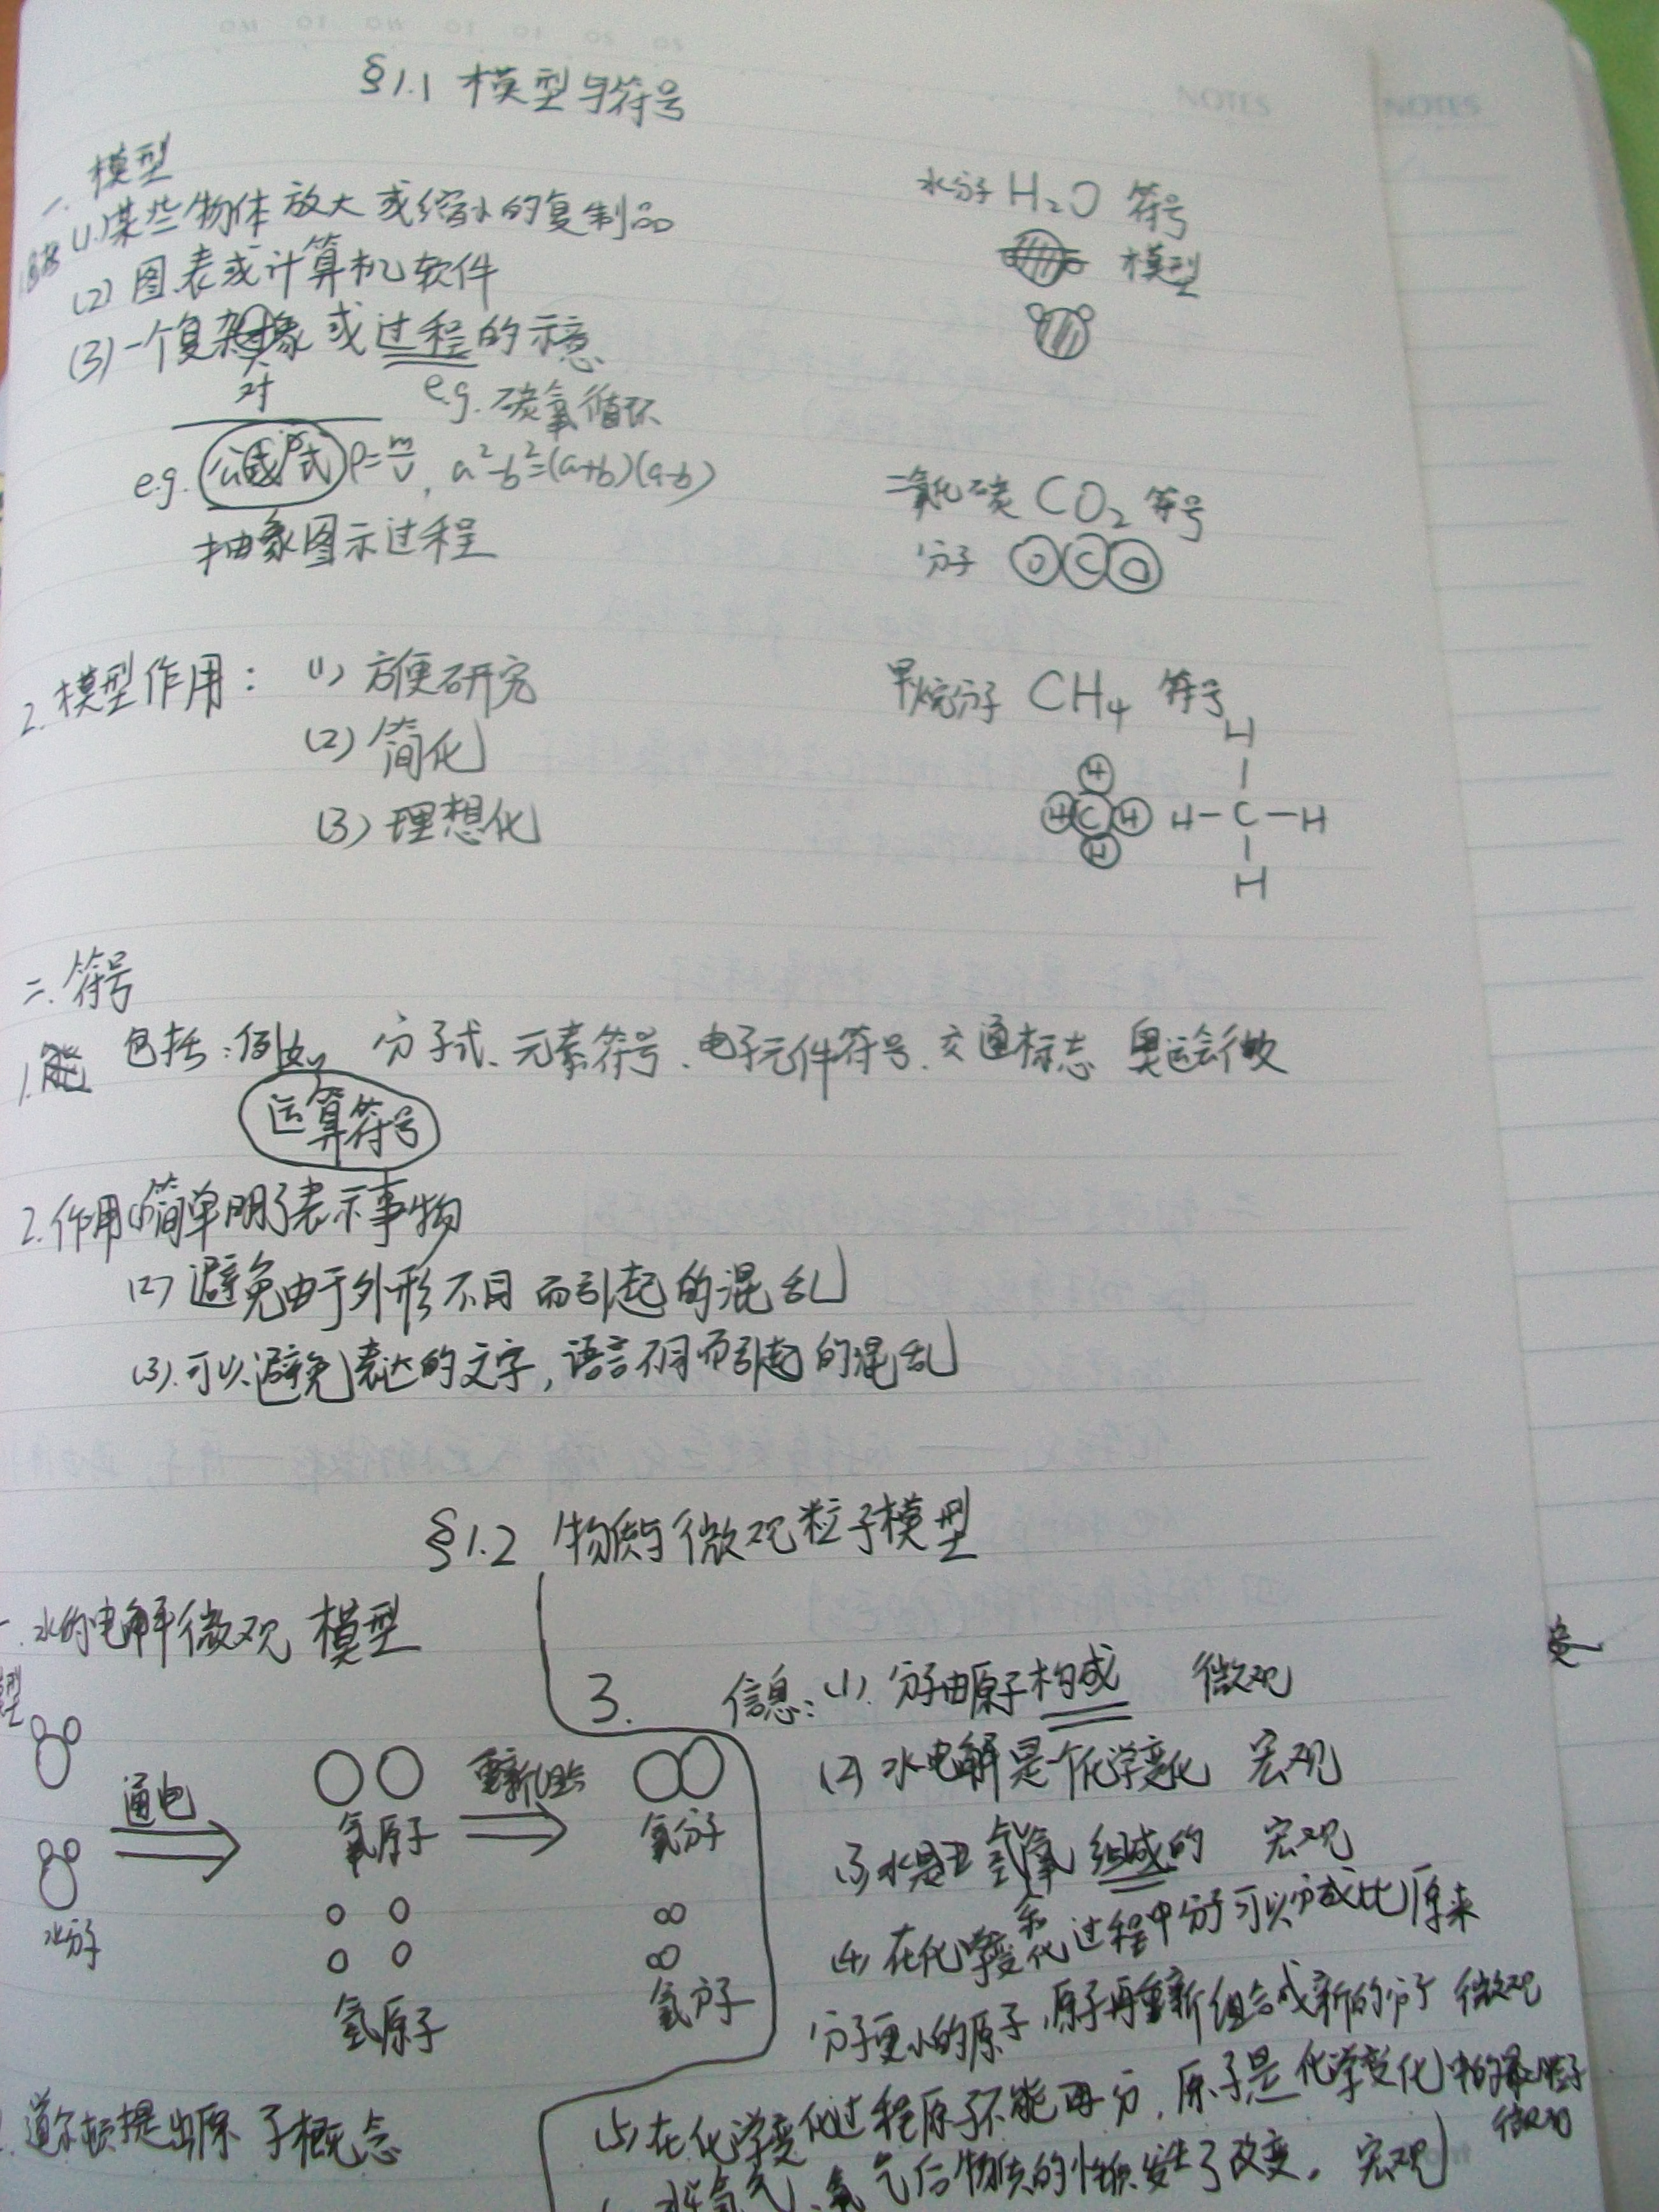 NOTES
NOTES
§1.1 模型与符号
一. 模型
(1).某些物体放大或缩小的复制品
(2) 图表或计算机软件
(3)一个复杂对象或过程的示意
e.g. 碳氧循环
e.g. 公式 ρ=m/v, a²-b²=(a+b)(a-b)
抽象图示过程
水分子 H₂O 符号
模型
二氧化碳 CO₂ 符号
分子 O C O
2. 模型作用: (1) 方便研究
(2) 简化
(3) 理想化
甲烷分子 CH₄ 符号
H H
H C H H-C-H
H H
二. 符号
1. 包括:例如 分子式、元素符号、电子元件符号、交通标志 奥运会徽
运算符号
2.作用(1)简单明了表示事物
(2) 避免由于外形不同而引起的混乱
(3).可以避免表达的文字,语言不同而引起的混乱
§1.2 物质与微观粒子模型
一.水的电解微观 模型
型
通电 重新组合
水分子
氧原子 氧分子
氢原子 氢分子
道尔顿提出原子概念
3. 信息:(1). 分子由原子构成 微观
(2) 水电解是一个化学变化 宏观
(3) 水是由氢氧组成的 宏观
(4) 在化学变化过程中分子可以分成比原来
分子更小的原子,原子再重新组合成新的分子 微观
(5) 在化学变化过程原子不能再分,原子是化学变化中的最小粒子
微观
氢气、氧气后物质的性质发生了改变。 宏观